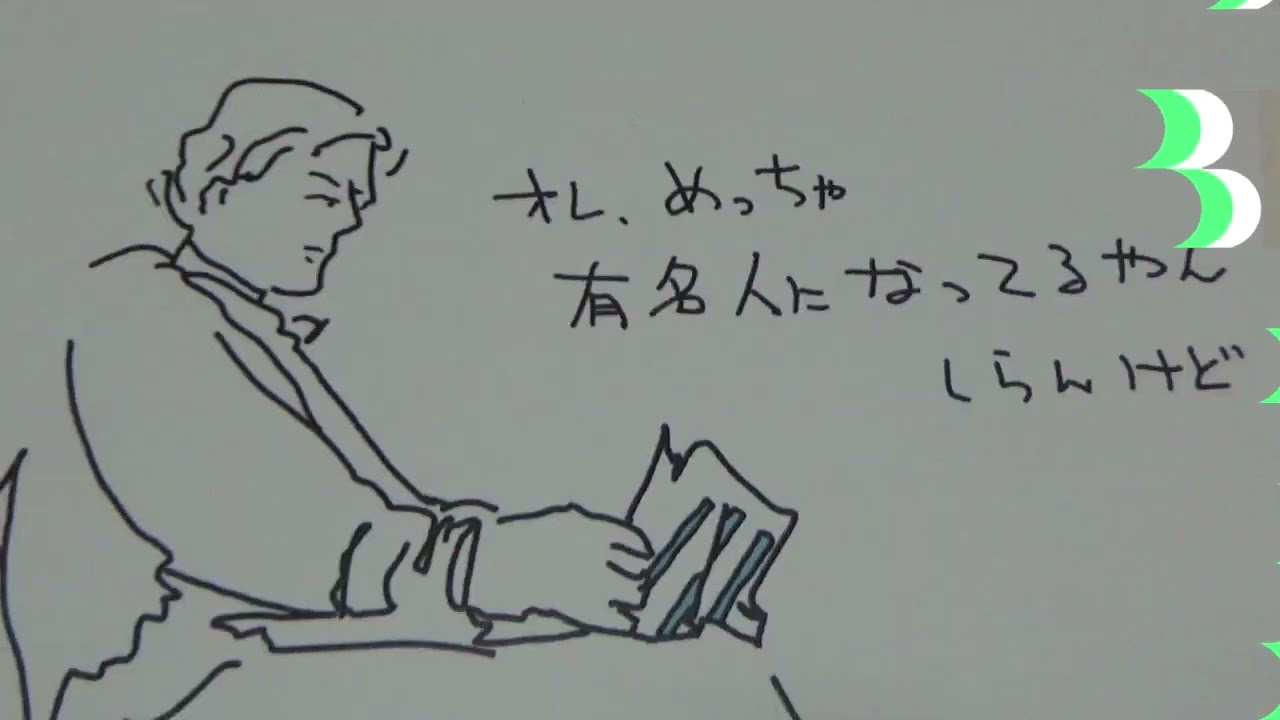 オレ、めっちゃ
有名人になってるやん
しらんけど